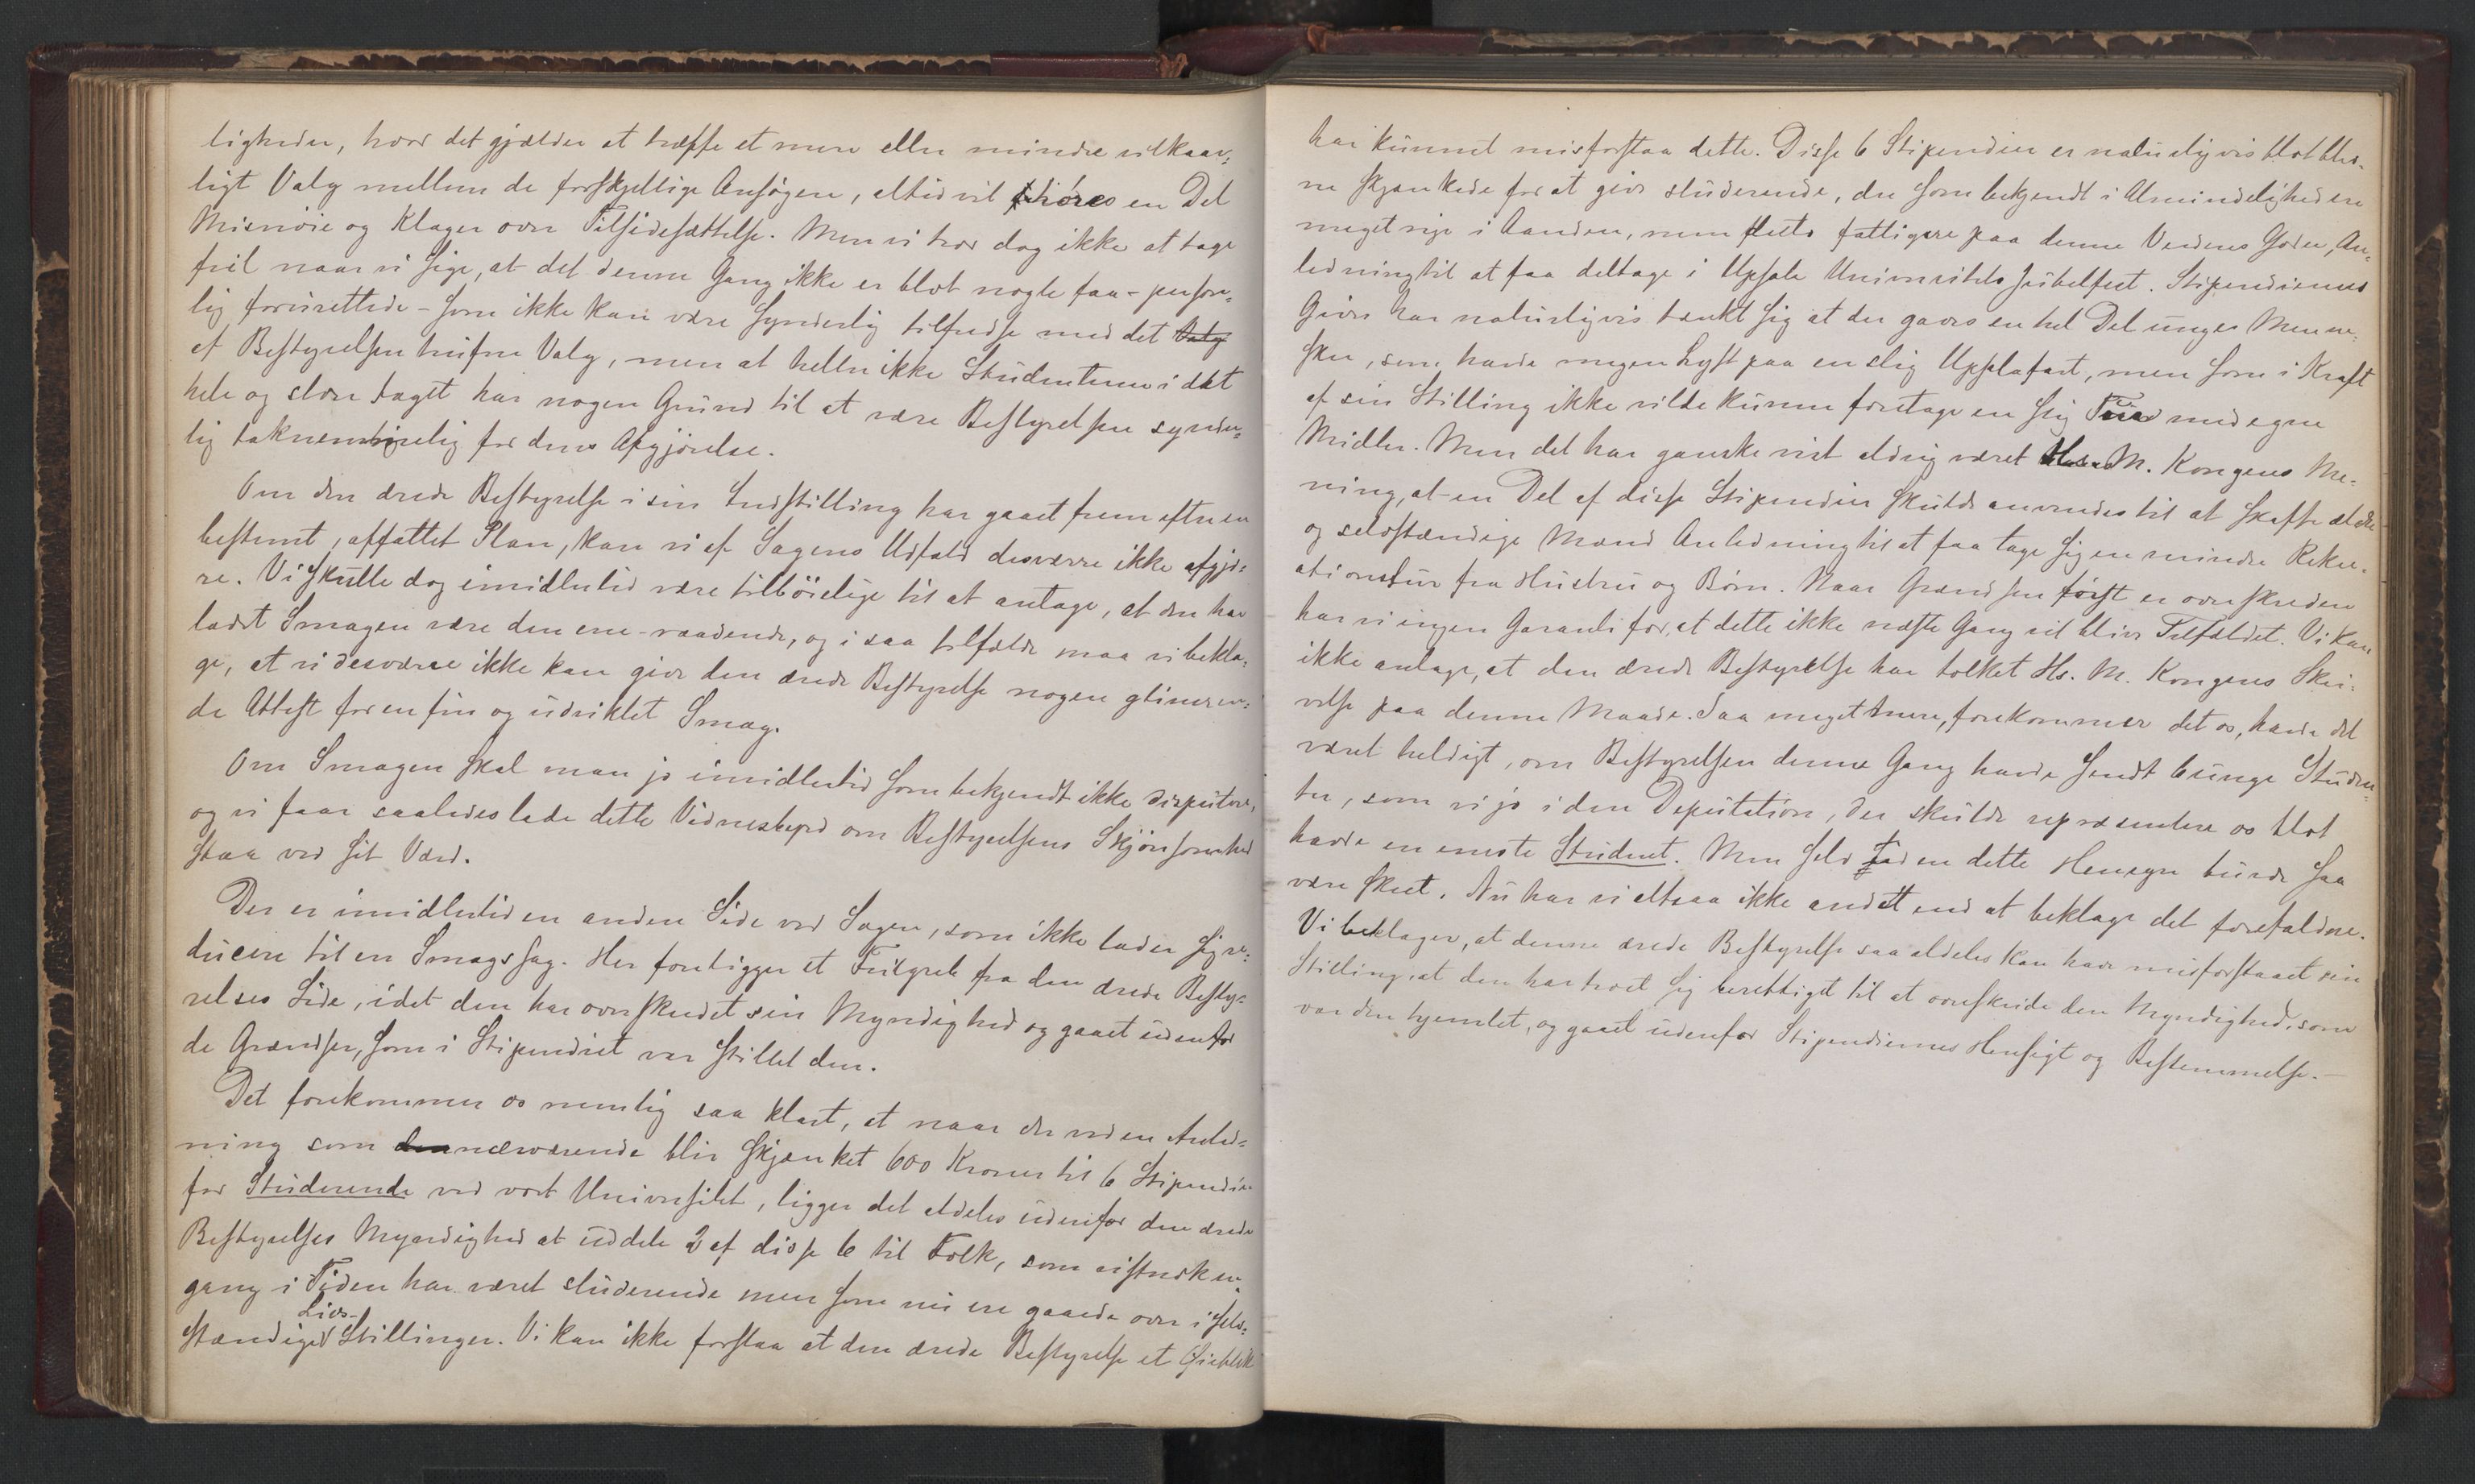 ligheder, hvor det gjælder at træffe et mere eller mindre vilkaar-
ligt Valg mellem de forskjellige Ansøgere, altid vil høres en Del
Misnøie og Klager over Tilsidesættelse. Men vi tror dog ikke at tage
feil naar vi sige, at det denne Gang ikke er blot nogle faa - person-
lig forurettede - som ikke kan være synderlig tilfredse med det Valg
af Bestyrelsen trufne Valg, men at heller ikke Studenterne i det
hele og store taget har nogen Grund til at være Bestyrelsen synder-
lig taknemmelig for dens Afgjørelse.
Om den ærede Bestyrelse i sin Indstilling har gaaet frem efter en
bestemt, affattet Plan, kan vi af Sagens Udfald desværre ikke afgjø-
re. Vi skulle dog imidlertid være tilbøielige til at antage, at den har
ladet Smagen være den ene-raadende, og i saa tilfælde maa vi bekla-
ge, at vi desværre ikke kan give den ærede Bestyrelse nogen glimren-
de Attest for en fin og udviklet Smag.
Om Smagen skal man jo imidlertid som bekjendt ikke disputere,
og vi faar saaledes lade dette Vidnesbyrd om Bestyrelsens Skjønsomhed
staa ved sit Værd.
Der er imidlertid en anden Side ved Sagen, som ikke lader sig re-
ducere til en Smagssag. Her foreligger et Feilgreb fra den ærede Besty-
relses Side, idet den har overskredet sin Myndighed og gaaet udenfor
de Grændser, som i Stipendiet var stillet den.
Det forekommer os nemlig saa klart, at naar der ved en Anled-
ning som den nærværende blir skjænket 600 Kroner til 6 Stipendier
for Studerende ved vort Universitet, ligger det aldeles udenfor den ærede
Bestyrelses Myndighed at uddele 2 af disse 6 til Folk, som vistnok en
gang i Tiden har været studerende men som nu ere gaaede over i selv-
stændige Livs-Stillinger. Vi kan ikke forstaa at den ærede Bestyrelse et Øieblik
har kunnet misforstaa dette. Disse 6 Stipendier er naturligvis blot blev-
ne skjænkede for at give studerende, der som bekjendt i Almindelighed ere
meget rige i Aanden, men desto fattigere paa denne Verdens Goder, An-
ledning til at faa deltage i Upsala Universitets Jubelfest. Stipendiernes
Giver har naturligvis tænkt sig at der gaves en hel Del unge Menne-
sker, som havde megen Lyst paa en slig Upsalafart, men som i Kraft
af sin Stilling ikke vilde kunne foretage en slig Tur med egne
Midler. Men det har ganske vist aldrig været Hs. M. Kongens Me-
ning, at en Del af disse Stipendier skulde anvendes til at skaffe ældre
og selvstændige Mænd Anledning til at faa tage sig en mindre Rekre-
ationstur fra Hustru og Børn. Naar Grændsen først er overskreden
har vi ingen Garanti for, at dette ikke næste Gang vil blive Tilfældet. Vi kan
ikke antage, at den ærede Bestyrelse har tolket Hs. M. Kongens Skri-
velse paa denne Maade. Saa meget mere, forekommer det os, havde det
været heldigt, om Bestyrelsen denne Gang havde sendt 6 unge Studen-
ter, som vi jo i den Deputation, der skulde repræsentere os blot
havde en eneste Student. Men selv uden dette Hensyn burde saa
være skeet. Nu har vi altsaa ikke andet end at beklage det forefaldne.
Vi beklager, at denne ærede Bestyrelse saa aldeles kan have misforstaaet sin
Stilling, at den har troet sig berettiget til at overskride den Myndighed, som
var den hjemlet, og gaaet udenfor Stipendiernes Hensigt og Bestemmelse. -